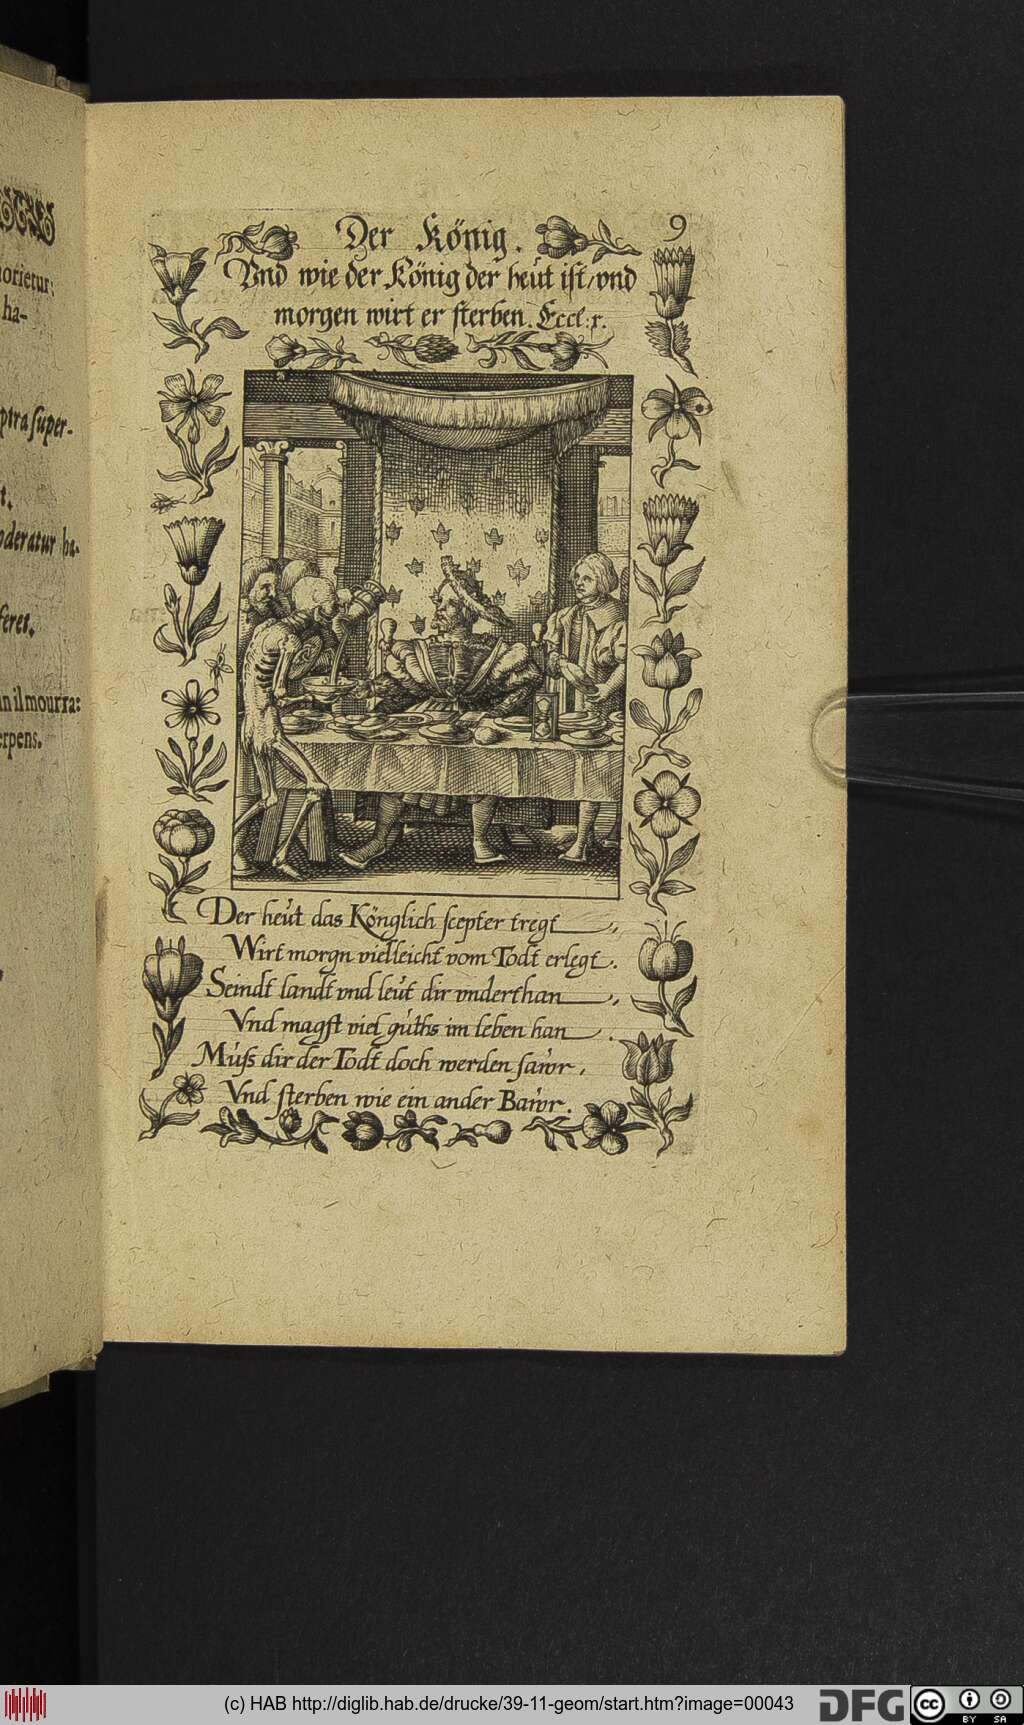 horietur:
ha-
ptra super-
t.
oderatur ha-
feret.
in il mourra:
erpens.
9
Der König.
Vnd wie der König der heût ist/vnd
morgen wirt er sterben. Eccl: x.
Der heût das Könglich scepter tregt
Wirt morgn vielleicht vom Todt erlegt.
Seindt landt vnd leût dir vnderthan
Vnd magst viel gûths im leben han.
Mûss dir der Todt doch werden sawr,
Vnd sterben wie ein ander Bawr.
(c) HAB http://diglib.hab.de/drucke/39-11-geom/start.htm?image=00043
DFG
cc BY SA